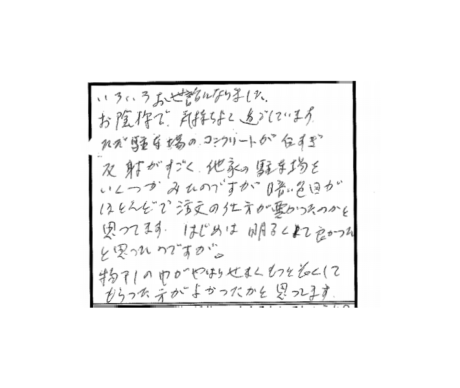 いろいろお世話になりました。
お陰様で、気持ちよく過ごしています。
ただ駐車場のコンクリートが白すぎ
反射がすごく、他家の駐車場を
いくつかみたのですが暗い色目が
ほとんどで注文の仕方が悪かったのかと
思ってます。はじめは明るくて良かった
と思ったのですが。
物干しの巾がやはりせまくもっと広くして
もらった方がよかったかと思ってます。